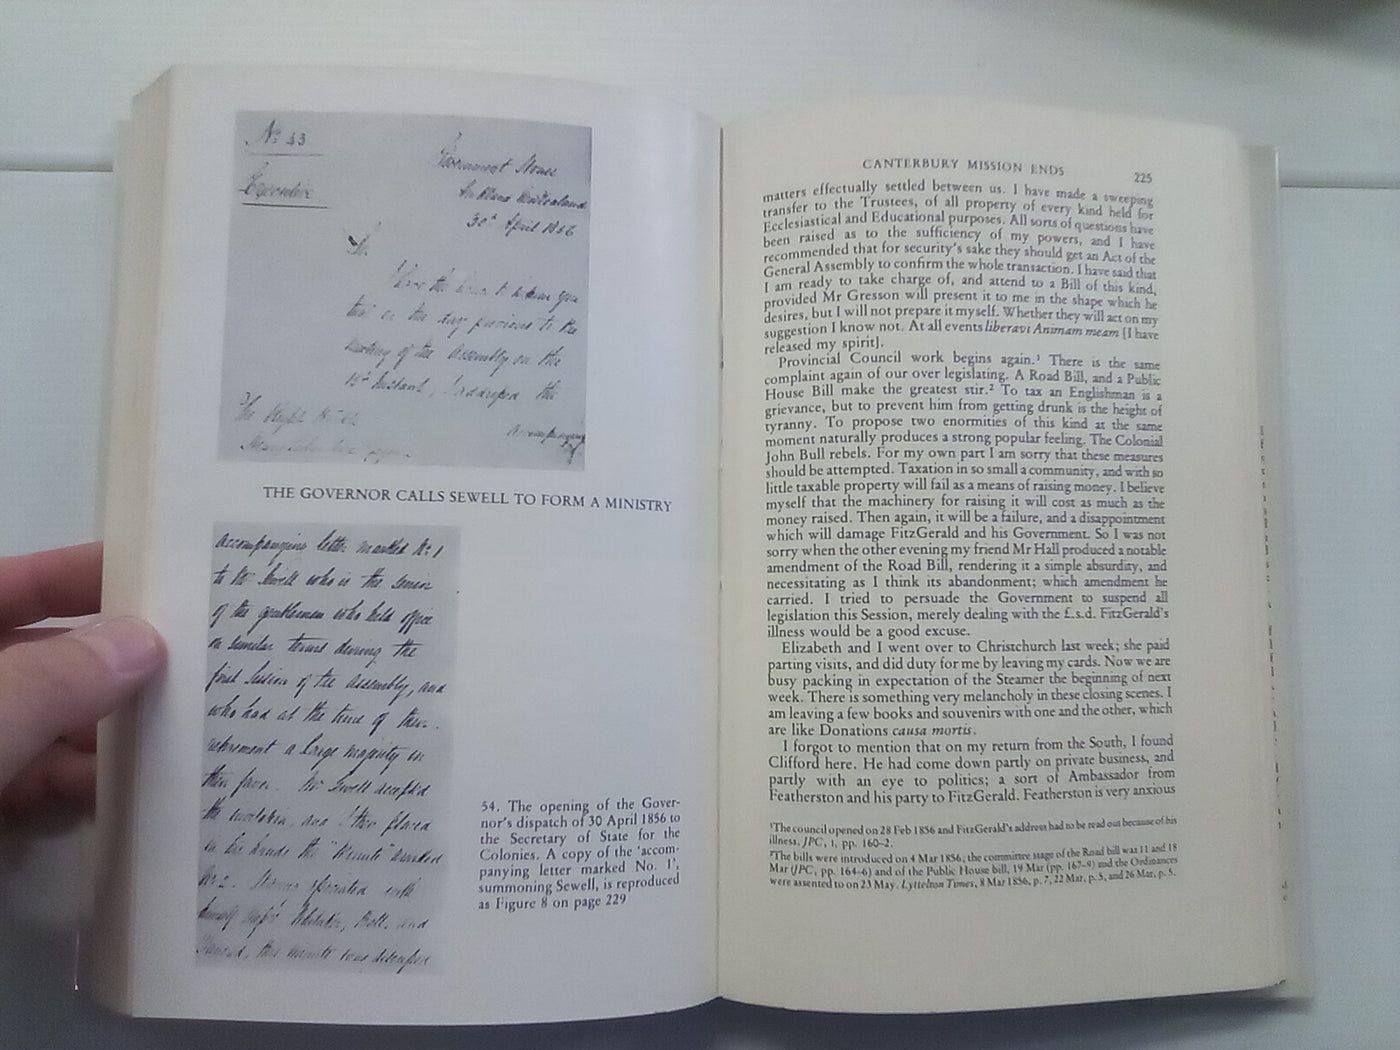 No 43
Government House
Auckland New Zealand
Executive
30th April 1856
Sir.
I have the honor to inform you
that on the day previous to the
meeting of the Assembly on the
15th Instant, I addressed the
accompanying
The Right Honble
THE GOVERNOR CALLS SEWELL TO FORM A MINISTRY
accompanying letter marked No. 1
to Mr Sewell who is the senior
of the gentlemen who held office
on similar terms during the
first Session of the Assembly, and
who had at the time of their
retirement a large majority in
their favor. Mr Sewell accepted
the invitation, and I then placed
in his hands the "Minute" marked
No 2. Having associated with
himself Messrs Whitaker, Bell, and
Tancred, this minute was discussed
54. The opening of the Gover-
nor's dispatch of 30 April 1856 to
the Secretary of State for the
Colonies. A copy of the 'accom-
panying letter marked No. 1',
summoning Sewell, is reproduced
as Figure 8 on page 229
CANTERBURY MISSION ENDS 225
matters effectually settled between us. I have made a sweeping
transfer to the Trustees, of all property of every kind held for
Ecclesiastical and Educational purposes. All sorts of questions have
been raised as to the sufficiency of my powers, and I have
recommended that for security's sake they should get an Act of the
General Assembly to confirm the whole transaction. I have said that
I am ready to take charge of, and attend to a Bill of this kind,
provided Mr Gresson will present it to me in the shape which he
desires, but I will not prepare it myself. Whether they will act on my
suggestion I know not. At all events liberavi Animam meam [I have
released my spirit].
Provincial Council work begins again.¹ There is the same
complaint again of our over legislating. A Road Bill, and a Public
House Bill make the greatest stir.² To tax an Englishman is a
grievance, but to prevent him from getting drunk is the height of
tyranny. To propose two enormities of this kind at the same
moment naturally produces a strong popular feeling. The Colonial
John Bull rebels. For my own part I am sorry that these measures
should be attempted. Taxation in so small a community, and with so
little taxable property will fail as a means of raising money. I believe
myself that the machinery for raising it will cost as much as the
money raised. Then again, it will be a failure, and a disappointment
which will damage FitzGerald and his Government. So I was not
sorry when the other evening my friend Mr Hall produced a notable
amendment of the Road Bill, rendering it a simple absurdity, and
necessitating as I think its abandonment; which amendment he
carried. I tried to persuade the Government to suspend all
legislation this Session, merely dealing with the £.s.d. FitzGerald's
illness would be a good excuse.
Elizabeth and I went over to Christchurch last week; she paid
parting visits, and did duty for me by leaving my cards. Now we are
busy packing in expectation of the Steamer the beginning of next
week. There is something very melancholy in these closing scenes. I
am leaving a few books and souvenirs with one and the other, which
are like Donations causa mortis.
I forgot to mention that on my return from the South, I found
Clifford here. He had come down partly on private business, and
partly with an eye to politics; a sort of Ambassador from
Featherston and his party to FitzGerald. Featherston is very anxious
¹The council opened on 28 Feb 1856 and FitzGerald's address had to be read out because of his
illness, JPC, 1, pp. 160–2.
²The bills were introduced on 4 Mar 1856, the committee stage of the Road bill was 11 and 18
Mar (JPC, pp. 164–6) and of the Public House bill, 19 Mar (pp. 167–9) and the Ordinances
were assented to on 23 May. Lyttelton Times, 8 Mar 1856, p. 7, 22 Mar, p. 5, and 26 Mar, p. 5.